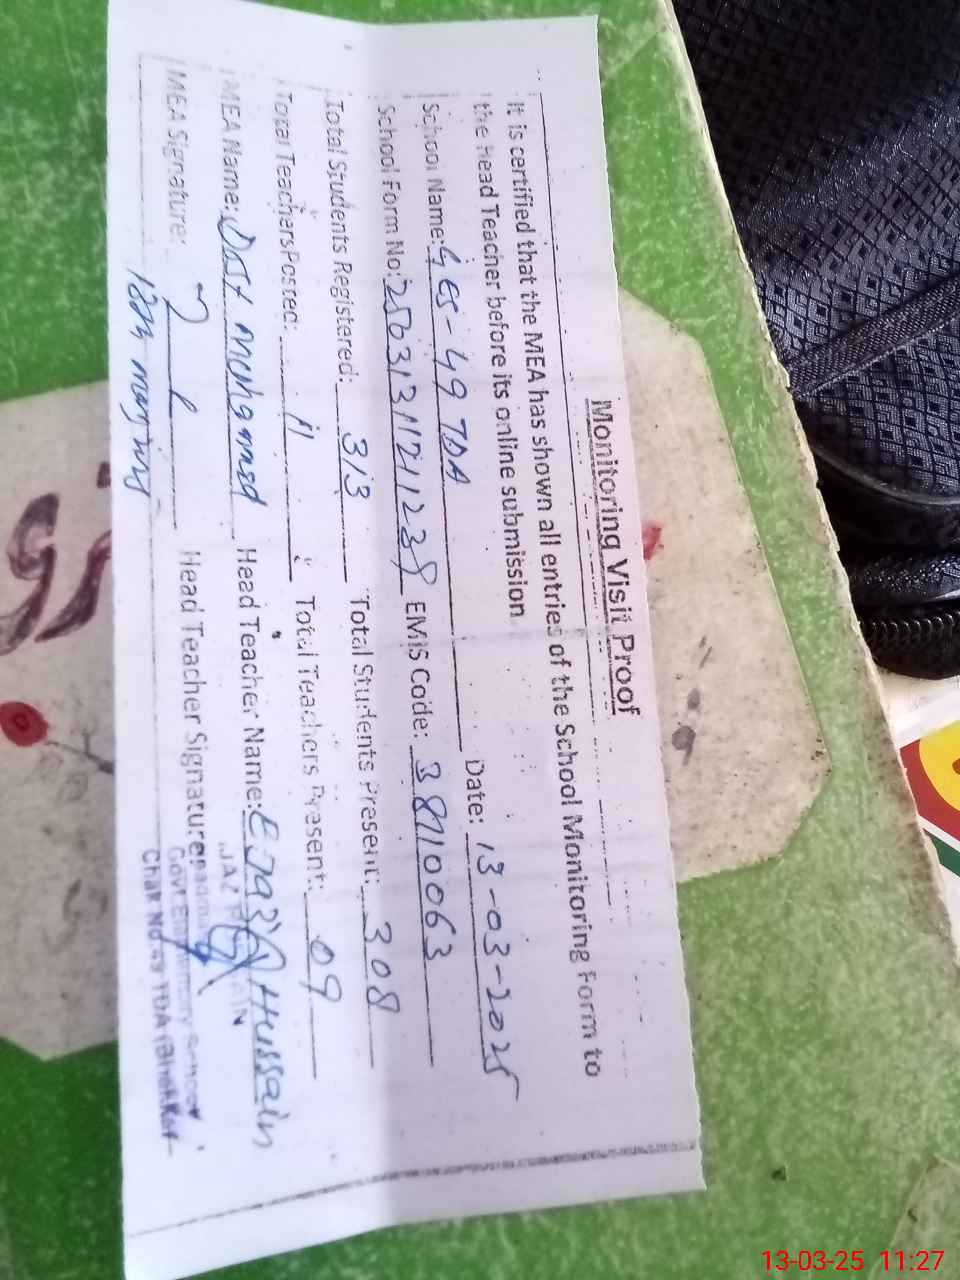 Monitoring Visit Proof
It is certified that the MEA has shown all entries of the School Monitoring Form to
the Head Teacher before its online submission
School Name: GES-49 TDA Date: 13-03-2025
School Form No: EMIS Code: 38710063
Total Students Registered: 313 Total Students Present: 308
Total Teachers Posted: 11 Total Teachers Present: 09
MEA Name: Dost mohamed Head Teacher Name: Ejaz Hussain
MEA Signature: Head Teacher Signature:
Govt. Elementary School
Chak No. 49 TDA (Bhakkar
13-03-25 11:27